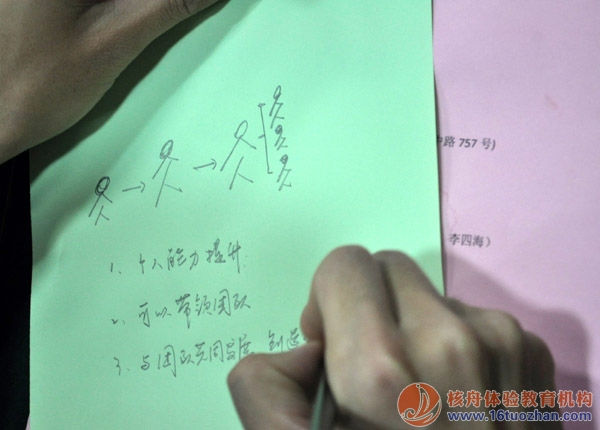 中路 757 号)
李四海）
1、个人能力提升
2、可以带领团队
3、与团队共同发展 创造
核舟体验教育机构
www.16tuozhan.com